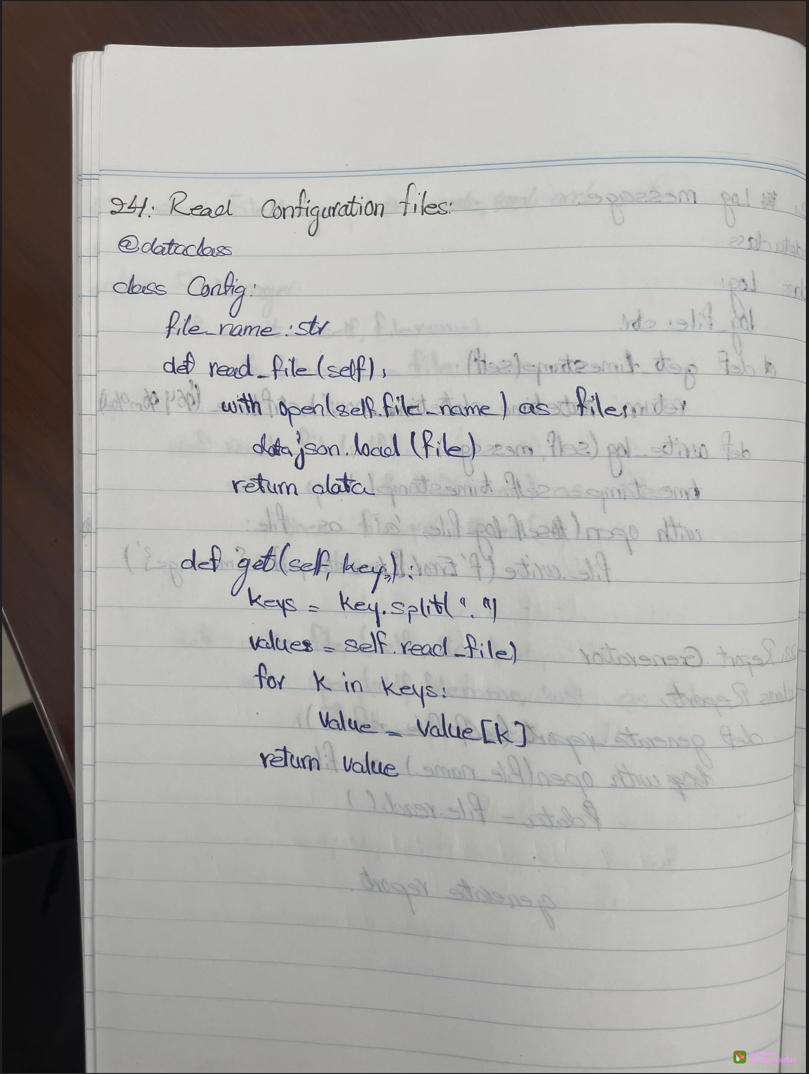 24: Read Configuration files:
@dataclass
class Config:
file_name: str
def read_file(self),
with open(self.file_name) as file,
data json.load (file)
return data
def get(self, key,):
keys = key.split(".")
values = self.read_file)
for k in keys:
value = value[k]
return value